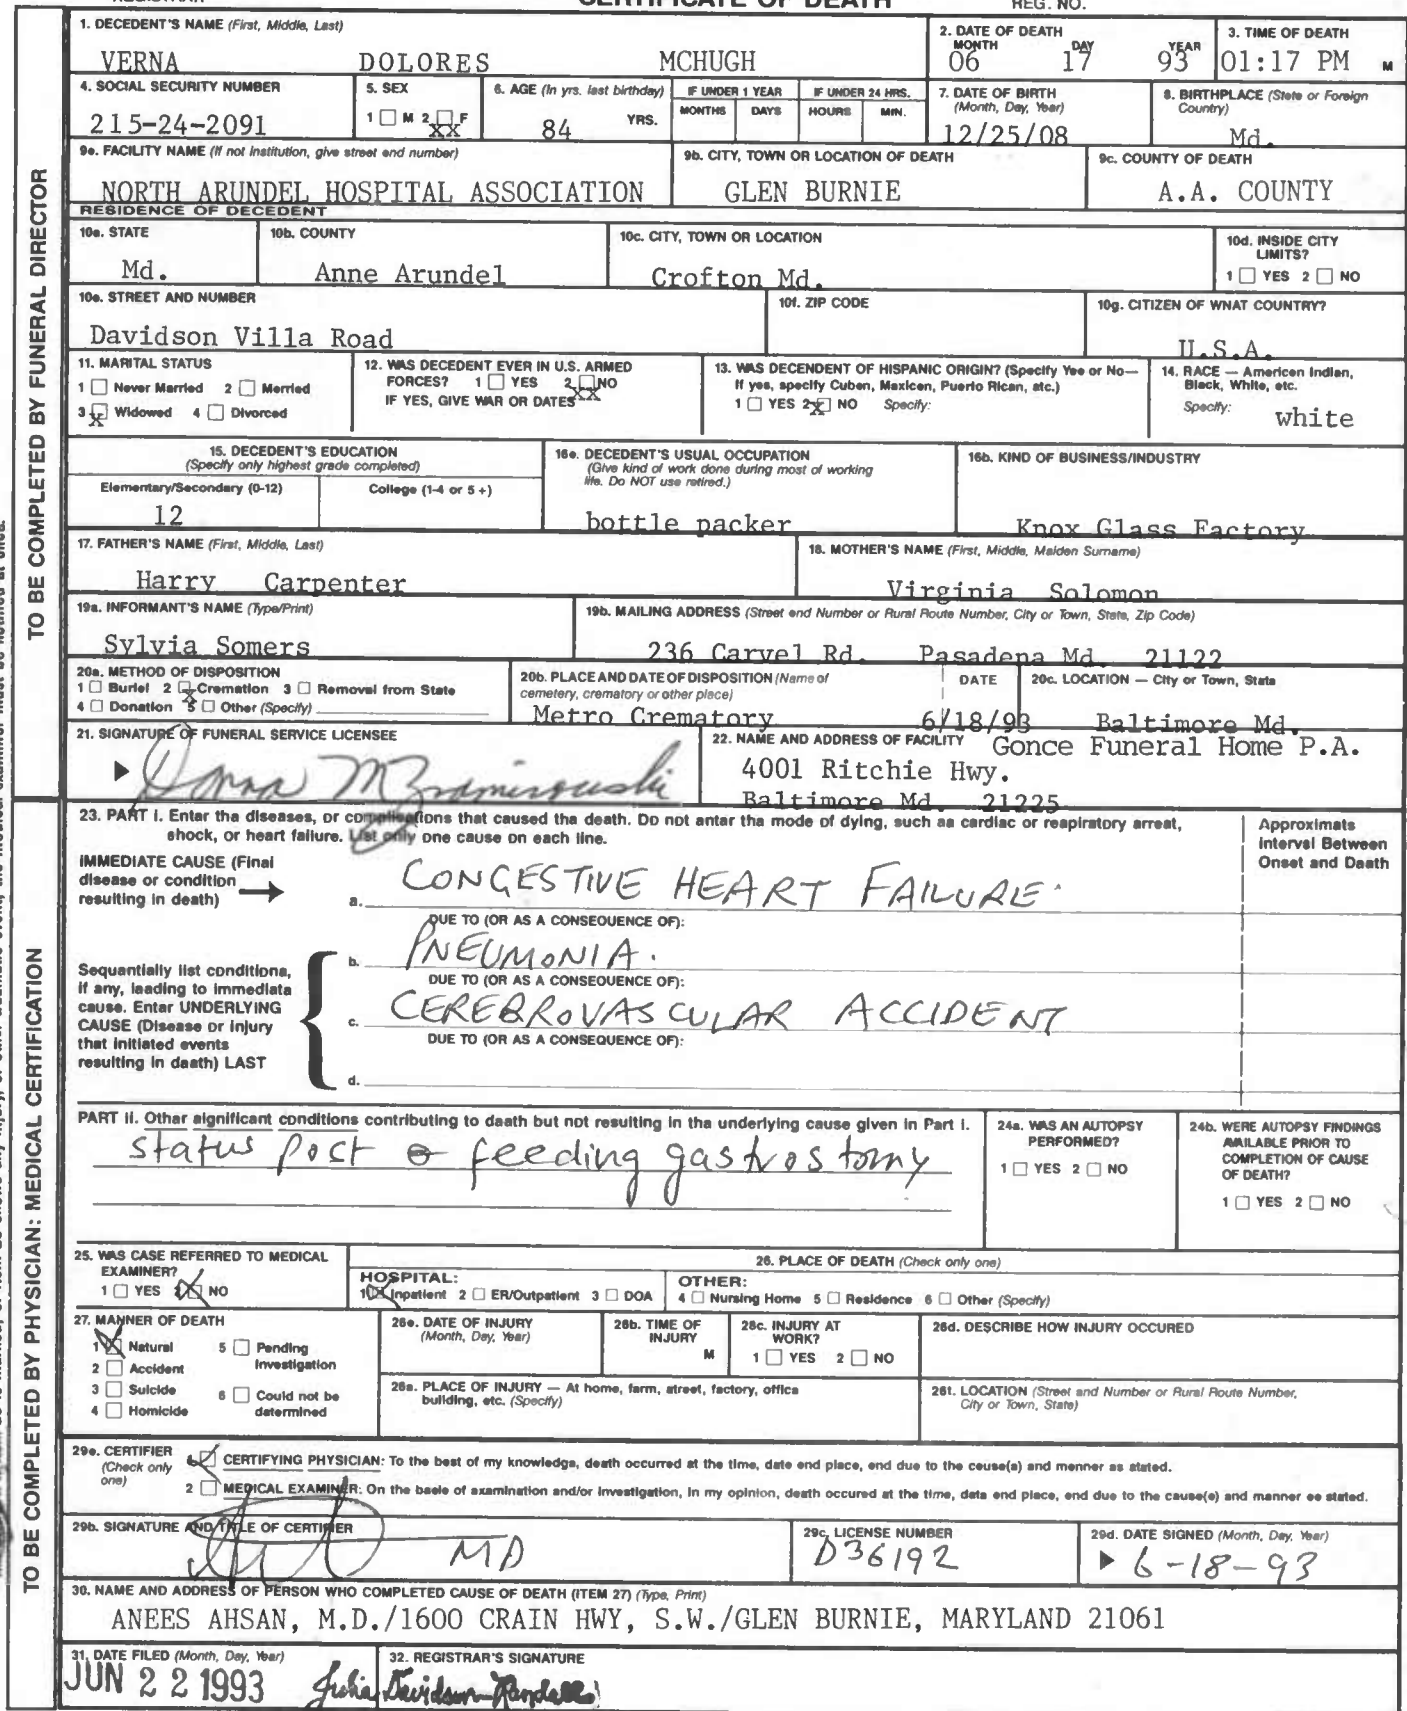 CERTIFICATE OF DEATH
REG. NO.
1. DECEDENT'S NAME (First, Middle, Last)
VERNA DOLORES MCHUGH
2. DATE OF DEATH
MONTH DAY YEAR
06 17 93
3. TIME OF DEATH
01:17 PM M
4. SOCIAL SECURITY NUMBER
215-24-2091
5. SEX
1 M 2 F
XX
6. AGE (In yrs. last birthday)
84 YRS.
IF UNDER 1 YEAR
MONTHS DAYS
IF UNDER 24 HRS.
HOURS MIN.
7. DATE OF BIRTH
(Month, Day, Year)
12/25/08
8. BIRTHPLACE (State or Foreign
Country)
Md.
9a. FACILITY NAME (If not institution, give street and number)
NORTH ARUNDEL HOSPITAL ASSOCIATION
9b. CITY, TOWN OR LOCATION OF DEATH
GLEN BURNIE
9c. COUNTY OF DEATH
A.A. COUNTY
RESIDENCE OF DECEDENT
10a. STATE
Md.
10b. COUNTY
Anne Arundel
10c. CITY, TOWN OR LOCATION
Crofton Md.
10d. INSIDE CITY
LIMITS?
1 YES 2 NO
10e. STREET AND NUMBER
Davidson Villa Road
10f. ZIP CODE
10g. CITIZEN OF WHAT COUNTRY?
U.S.A.
11. MARITAL STATUS
1 Never Married 2 Married
3 X Widowed 4 Divorced
12. WAS DECEDENT EVER IN U.S. ARMED
FORCES? 1 YES 2 NO
XX
IF YES, GIVE WAR OR DATES
13. WAS DECENDENT OF HISPANIC ORIGIN? (Specify Yes or No—
If yes, specify Cuban, Mexican, Puerto Rican, etc.)
1 YES 2 X NO Specify:
14. RACE — American Indian,
Black, White, etc.
Specify: white
15. DECEDENT'S EDUCATION
(Specify only highest grade completed)
Elementary/Secondary (0-12) College (1-4 or 5 +)
12
16a. DECEDENT'S USUAL OCCUPATION
(Give kind of work done during most of working
life. Do NOT use retired.)
bottle packer
16b. KIND OF BUSINESS/INDUSTRY
Knox Glass Factory
17. FATHER'S NAME (First, Middle, Last)
Harry Carpenter
18. MOTHER'S NAME (First, Middle, Maiden Surname)
Virginia Solomon
19a. INFORMANT'S NAME (Type/Print)
Sylvia Somers
19b. MAILING ADDRESS (Street and Number or Rural Route Number, City or Town, State, Zip Code)
236 Carvel Rd. Pasadena Md. 21122
20a. METHOD OF DISPOSITION
1 Burial 2 X Cremation 3 Removal from State
4 Donation 5 Other (Specify)
20b. PLACE AND DATE OF DISPOSITION (Name of
cemetery, crematory or other place)
DATE
Metro Crematory 6/18/93
20c. LOCATION — City or Town, State
Baltimore Md.
21. SIGNATURE OF FUNERAL SERVICE LICENSEE
22. NAME AND ADDRESS OF FACILITY Gonce Funeral Home P.A.
4001 Ritchie Hwy.
Baltimore Md. 21225
TO BE COMPLETED BY FUNERAL DIRECTOR
23. PART I. Enter the diseases, or complications that caused the death. Do not enter the mode of dying, such as cardiac or respiratory arrest,
shock, or heart failure. List only one cause on each line.
Approximate
Interval Between
Onset and Death
IMMEDIATE CAUSE (Final
disease or condition
resulting in death)
a. CONGESTIVE HEART FAILURE.
DUE TO (OR AS A CONSEQUENCE OF):
b. PNEUMONIA.
DUE TO (OR AS A CONSEQUENCE OF):
c. CEREBROVASCULAR ACCIDENT
DUE TO (OR AS A CONSEQUENCE OF):
d.
Sequentially list conditions,
if any, leading to immediate
cause. Enter UNDERLYING
CAUSE (Disease or injury
that initiated events
resulting in death) LAST
PART II. Other significant conditions contributing to death but not resulting in the underlying cause given in Part I.
status post feeding gastrostomy
24a. WAS AN AUTOPSY
PERFORMED?
1 YES 2 NO
24b. WERE AUTOPSY FINDINGS
AVAILABLE PRIOR TO
COMPLETION OF CAUSE
OF DEATH?
1 YES 2 NO
25. WAS CASE REFERRED TO MEDICAL
EXAMINER?
1 YES 2 X NO
26. PLACE OF DEATH (Check only one)
HOSPITAL:
1 X Inpatient 2 ER/Outpatient 3 DOA
OTHER:
4 Nursing Home 5 Residence 6 Other (Specify)
27. MANNER OF DEATH
1 X Natural 5 Pending
Investigation
2 Accident
3 Suicide 6 Could not be
determined
4 Homicide
28a. DATE OF INJURY
(Month, Day, Year)
28b. TIME OF
INJURY
M
28c. INJURY AT
WORK?
1 YES 2 NO
28d. DESCRIBE HOW INJURY OCCURED
28e. PLACE OF INJURY — At home, farm, street, factory, office
building, etc. (Specify)
28f. LOCATION (Street and Number or Rural Route Number,
City or Town, State)
29a. CERTIFIER
(Check only
one)
CERTIFYING PHYSICIAN: To the best of my knowledge, death occurred at the time, date and place, and due to the cause(s) and manner as stated.
2 MEDICAL EXAMINER: On the basis of examination and/or investigation, in my opinion, death occured at the time, date and place, and due to the cause(s) and manner as stated.
29b. SIGNATURE AND TITLE OF CERTIFIER
MD
29c. LICENSE NUMBER
D36192
29d. DATE SIGNED (Month, Day, Year)
6-18-93
30. NAME AND ADDRESS OF PERSON WHO COMPLETED CAUSE OF DEATH (ITEM 27) (Type, Print)
ANEES AHSAN, M.D./1600 CRAIN HWY, S.W./GLEN BURNIE, MARYLAND 21061
31. DATE FILED (Month, Day, Year)
JUN 22 1993
32. REGISTRAR'S SIGNATURE
Julia Davidson-Randall
TO BE COMPLETED BY PHYSICIAN: MEDICAL CERTIFICATION